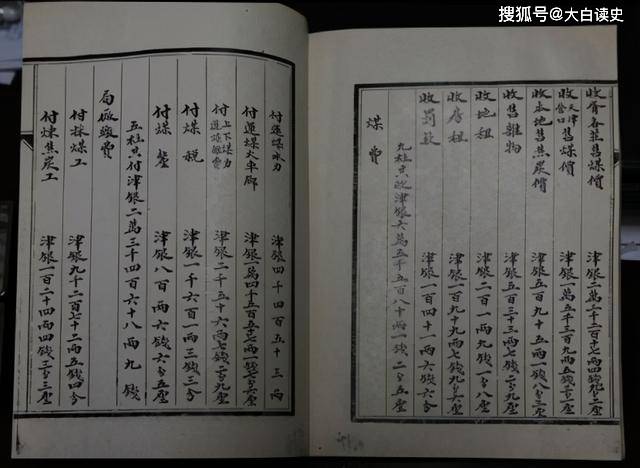 搜狐号@大白读史
收晋各崇售煤價
津銀二萬一千二百十七兩四錢九分二厘
收天津營口售煤價
津銀一萬五千三百九兩五錢三分三厘
收本地售焦炭價
津銀五百九十五兩一錢八分三厘
收售雜物
津銀五百三十三兩七錢二分九厘
收地租
津銀二百一兩九錢一分八厘
收房租
津銀一百九十九兩七錢九分六厘
收罰款
津銀一百四十一兩六錢六分
九柱共收津銀六萬五千五百八十兩一錢二分五厘
煤費
付運煤水力
津銀四千四百五十三兩
付運煤火車腳
津銀一萬四千五百五十七兩一錢二分九厘
付上下煤力
津銀二千五十六兩七錢二分九厘
付煤税
津銀一千六百一兩三錢三分
付煤釐
津銀八百兩六錢六分五厘
五柱共付津銀二萬三千四百六十八兩九錢
局廠繳費
付採煤工
津銀九千二百七十二兩五錢四分
付煉焦炭工
津銀一百二十四兩四錢二分三厘